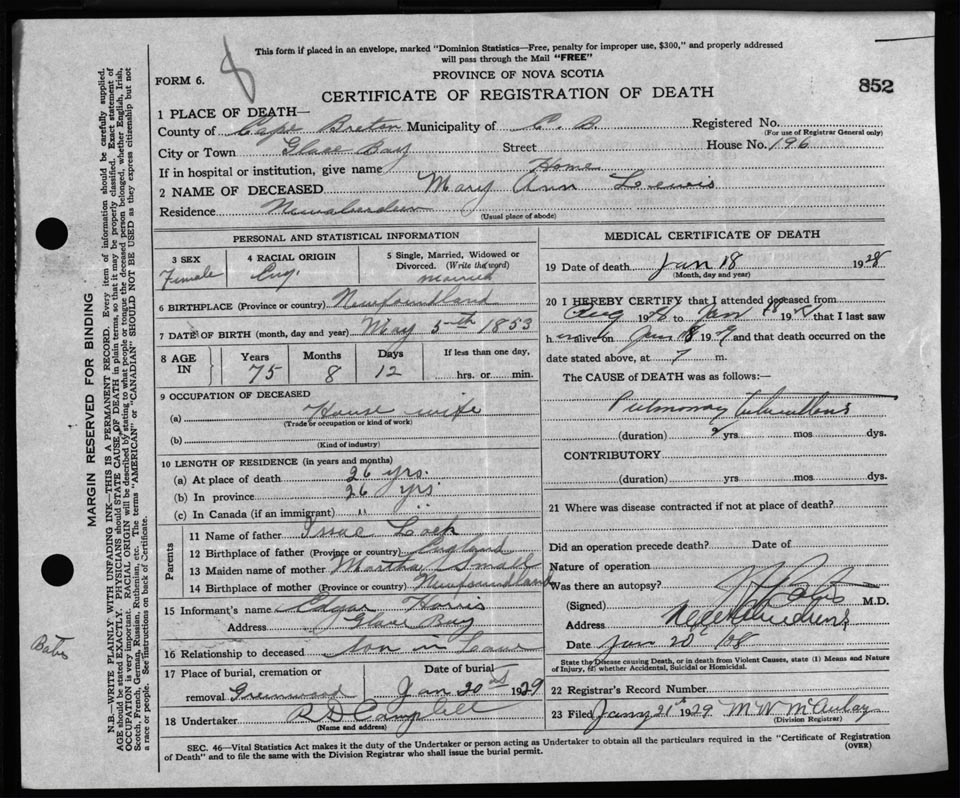 This form if placed in an envelope, marked "Dominion Statistics—Free, penalty for improper use, $300," and properly addressed
will pass through the Mail "FREE"
8
PROVINCE OF NOVA SCOTIA
FORM 6.
852
CERTIFICATE OF REGISTRATION OF DEATH
1 PLACE OF DEATH—
County of Cape Breton Municipality of C. B. Registered No.
(For use of Registrar General only)
City or Town Glace Bay Street House No. 196
If in hospital or institution, give name Home
2 NAME OF DECEASED Mary Ann Lewis
Residence Newaberdeen
(Usual place of abode)
PERSONAL AND STATISTICAL INFORMATION
3 SEX 4 RACIAL ORIGIN 5 Single, Married, Widowed or
Divorced. (Write the word)
Female Eng. Married
6 BIRTHPLACE (Province or country) Newfoundland
7 DATE OF BIRTH (month, day and year) May 5th 1853
8 AGE IN Years Months Days If less than one day,
75 8 12 hrs. or min.
9 OCCUPATION OF DECEASED
(a) House wife
(Trade or occupation or kind of work)
(b)
(Kind of industry)
10 LENGTH OF RESIDENCE (in years and months)
(a) At place of death 26 yrs.
(b) In province 26 yrs.
(c) In Canada (if an immigrant) " "
Parents
11 Name of father Isaac
12 Birthplace of father (Province or country) England
13 Maiden name of mother Martha Small
14 Birthplace of mother (Province or country) Newfoundland
15 Informant's name Edgar Harris
Address Glace Bay
16 Relationship to deceased son in Law
17 Place of burial, cremation or Date of burial
removal Greenwood Jan 20st 1929
18 Undertaker R D Campbell
(Name and address)
MEDICAL CERTIFICATE OF DEATH
19 Date of death Jan 18 1928
(Month, day and year)
20 I HEREBY CERTIFY that I attended deceased from
Aug 1928 to Jan 18 19 that I last saw
h er alive on Jan 18 1929 and that death occurred on the
date stated above, at 7 m.
The CAUSE of DEATH was as follows:—
Pulmonary Tuberculosis
(duration) 2 yrs. mos dys.
CONTRIBUTORY
(duration) yrs. mos dys.
21 Where was disease contracted if not at place of death?
Did an operation precede death? Date of
Nature of operation
Was there an autopsy?
(Signed) M.D.
Address
Date Jan 20
State the Disease causing Death, or in death from Violent Causes, state (1) Means and Nature
of Injury, (2) whether Accidental, Suicidal or Homicidal.
22 Registrar's Record Number
23 Filed Jany 21st 1929 M W McAulay
(Division Registrar)
SEC. 46—Vital Statistics Act makes it the duty of the Undertaker or person acting as Undertaker to obtain all the particulars required in the "Certificate of Registration
of Death" and to file the same with the Division Registrar who shall issue the burial permit.
(OVER)
MARGIN RESERVED FOR BINDING
N.B.—WRITE PLAINLY WITH UNFADING INK—THIS IS A PERMANENT RECORD. Every item of information should be carefully supplied.
AGE should be stated EXACTLY. PHYSICIANS should STATE CAUSE OF DEATH in plain terms, so that it may be properly classified. Exact statement of
OCCUPATION is very important. RACIAL ORIGIN will be described by stating to what people or tongue the deceased person belonged, whether English, Irish,
Scotch, French, German, Russian, Ruthenian, etc. The terms "AMERICAN" or "CANADIAN" SHOULD NOT BE USED as they express citizenship but not
a race or people. See instructions on back of Certificate.